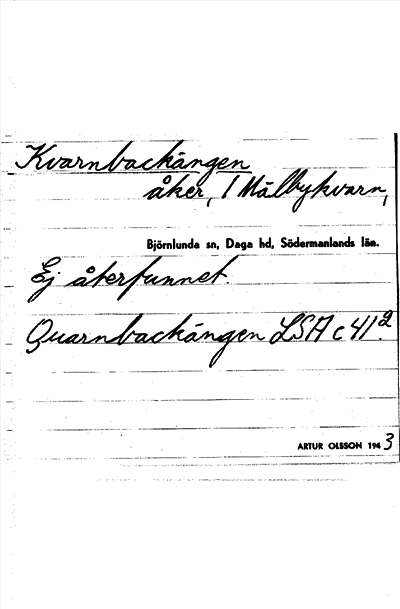 Kvarnbackängen
åker, / Målbykvarn,
Björnlunda sn, Daga hd, Södermanlands län.
Ej återfunnet.
Quarnbackängen LSA c 41².
ARTUR OLSSON 1943